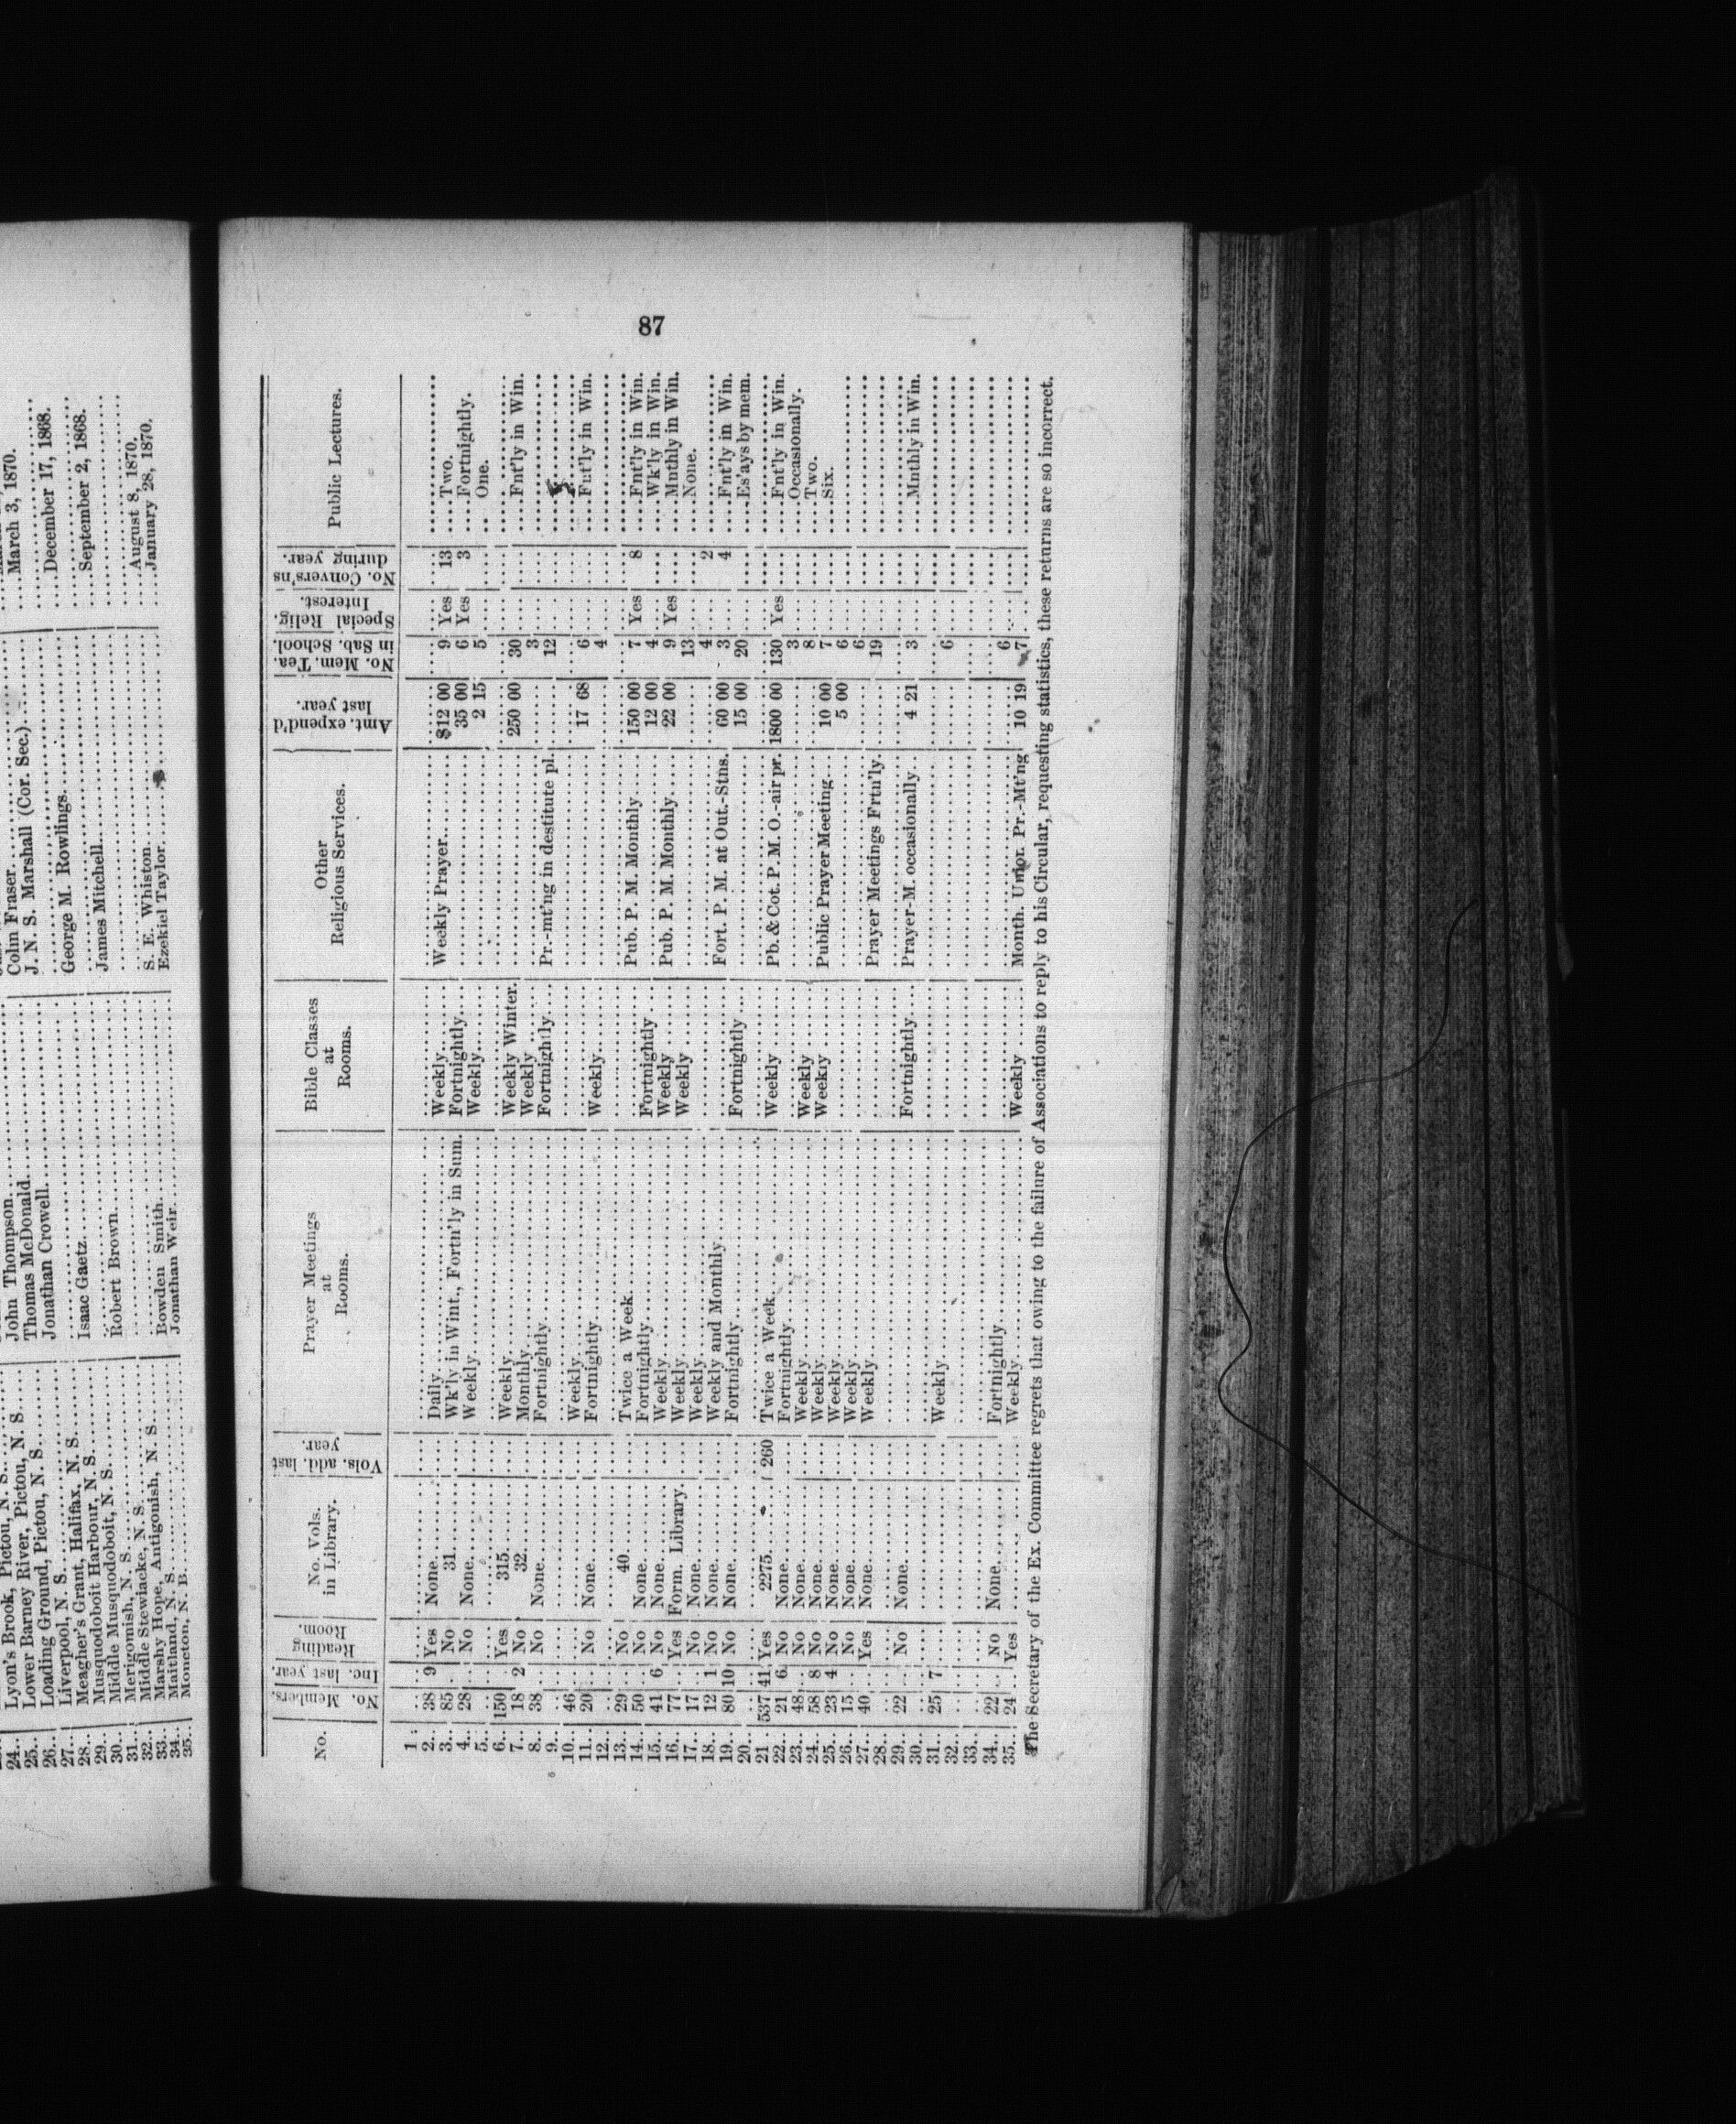 24.. Lyon's Brook, Pictou, N. S. John Thompson Colin Fraser March 3, 1870.
25.. Lower Barney River, Pictou, N. S. Thomas McDonald J. N. S. Marshall (Cor. Sec.)
26.. Loading Ground, Pictou, N. S. Jonathan Crowell December 17, 1868.
27.. Liverpool, N. S. George M. Rowlings
28.. Meagher's Grant, Halifax, N. S. Isaac Gaetz September 2, 1868.
29.. Musquodoboit Harbour, N. S.
30.. Middle Musquodoboit, N. S. Robert Brown James Mitchell
31.. Merigomish, N. S.
32.. Middle Stewiacke, N. S.
33.. Marshy Hope, Antigonish, N. S.
34.. Maitland, N. S. Bowden Smith S. E. Whiston August 8, 1870.
35.. Moncton, N. B. Jonathan Weir Ezekiel Taylor January 28, 1870.
87
No. No. Members. Inc. last year. Reading Room. No. Vols. in Library. Vols. add. last year. Prayer Meetings at Rooms. Bible Classes at Rooms. Other Religious Services. Amt. expend'd last year. No. Mem. Tea. in Sab. School. Special Relig. Interest. No. Convers'ns during year. Public Lectures.
1
2.. 38 9 Yes None Daily Weekly Weekly Prayer $12 00 9 Yes 13 Two.
3.. 85 No 31 Wk'ly in Wint., Fortn'ly in Sum. Fortnightly 35 00 6 Yes 3 Fortnightly.
4.. 28 No None Weekly Weekly 2 15 5 One.
5..
6.. 150 Yes 315 Weekly Weekly Winter. 250 00 30 Fnt'ly in Win.
7.. 18 2 No 32 Monthly Weekly 3
8.. 38 No None Fortnightly Fortnightly Pr.-mt'ng in destitute pl. 12
9..
10.. 46 Weekly 17 68 6 Fut'ly in Win.
11.. 20 No None Fortnightly Weekly 4
12..
13.. 29 No 40 Twice a Week Pub. P. M. Monthly 150 00 7 Yes 8 Fnt'ly in Win.
14.. 50 No None Fortnightly Fortnightly 12 00 4 Wk'ly in Win.
15.. 41 6 No None Weekly Weekly Pub. P. M. Monthly 22 00 9 Yes Mnthly in Win.
16.. 77 Yes Form. Library Weekly Weekly 13 None.
17.. 17 No None Weekly 4 2
18.. 12 1 No None Weekly and Monthly Fort. P. M. at Out.-Stns. 60 00 3 4 Fnt'ly in Win.
19.. 80 10 No None Fortnightly Fortnightly 15 00 20 Es'ays by mem.
20..
21 537 41 Yes 2275 260 Twice a Week Weekly Pb. & Cot. P. M. O.-air pr. 1800 00 130 Yes Fnt'ly in Win.
22.. 21 6 No None Fortnightly 3 Occasionally.
23.. 48 No None Weekly Weekly 8 Two.
24.. 58 8 No None Weekly Weekly Public Prayer Meeting 10 00 7 Six.
25.. 23 4 No None Weekly 5 00 6
26.. 15 No None Weekly 6
27.. 40 Yes None Weekly Prayer Meetings Frtn'ly. 19
28..
29.. 22 No None Fortnightly Prayer-M. occasionally 4 21 3 Mnthly in Win.
30..
31.. 25 7 Weekly 6
32..
33..
34.. 22 No None Fortnightly 6
35.. 24 Yes Weekly Weekly Month. Union Pr.-Mt'ng 10 19 7
The Secretary of the Ex. Committee regrets that owing to the failure of Associations to reply to his Circular, requesting statistics, these returns are so incorrect.